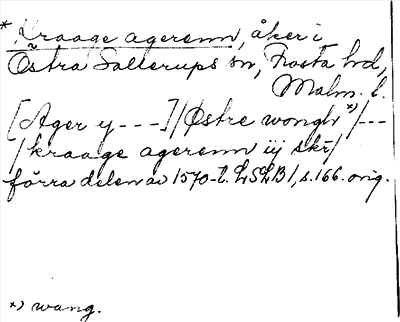 * Kraage agerenn, åker i
Östra Sallerups sn, Frosta hd,
Malm. l.
[Ager y - - -]/Østre wongh *)/---
/kraage agerenn iij skr/
förra delen av 1570-t. LSLB 1, s. 166. orig.
*) wang.